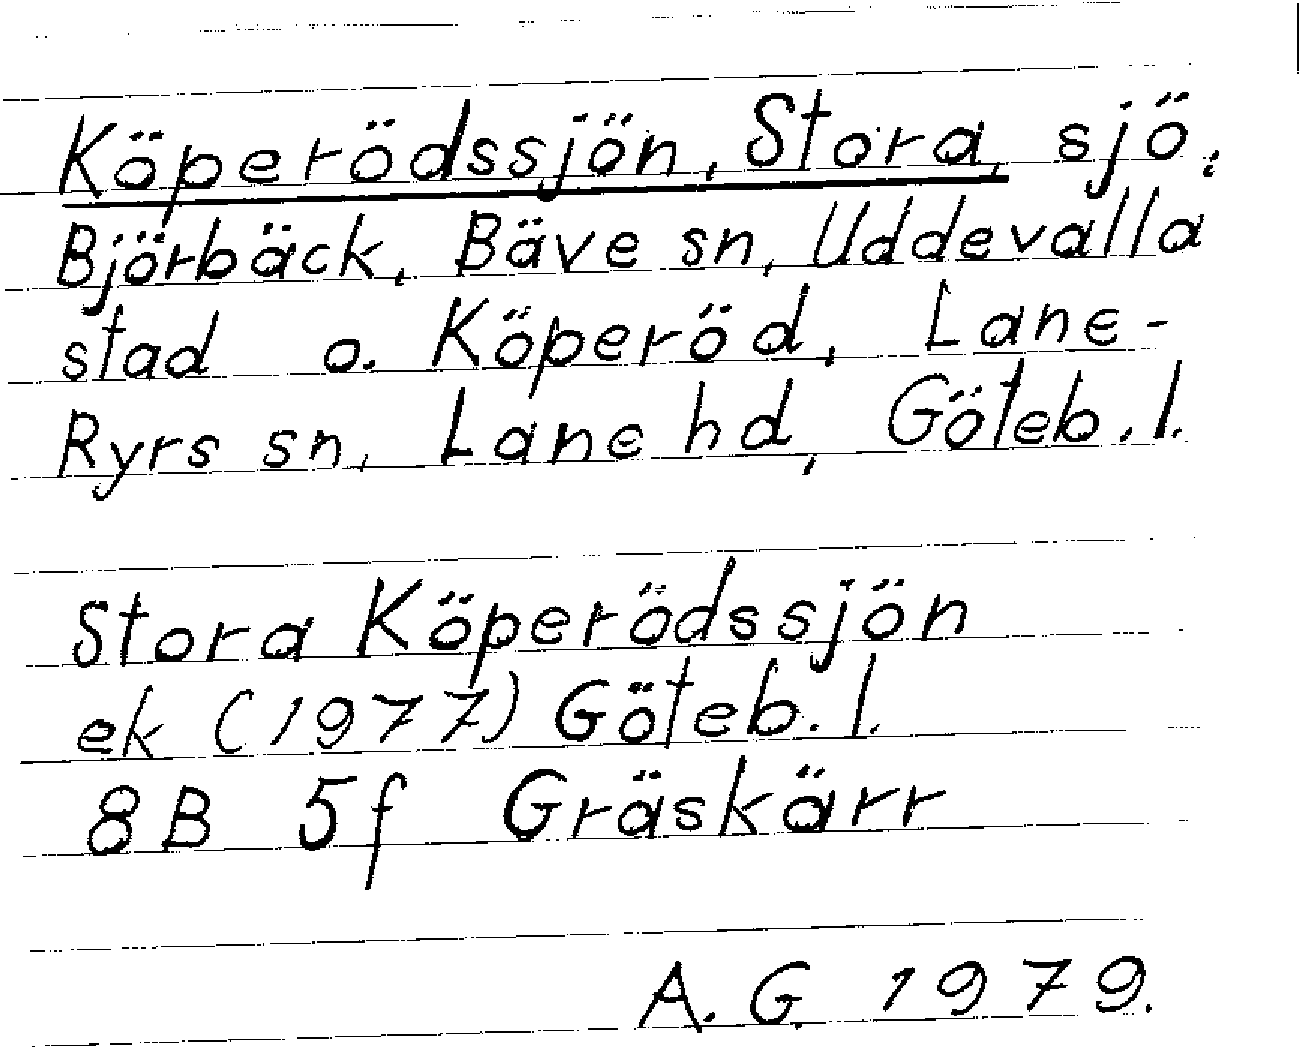 Köperödssjön, Stora, sjö,
Björbäck, Bäve sn, Uddevalla
stad o. Köperöd, Lane-
Ryrs sn, Lane hd, Göteb. l.
Stora Köperödssjön
ek (1977) Göteb. l.
8B 5f Gräskärr
A. G. 1979.